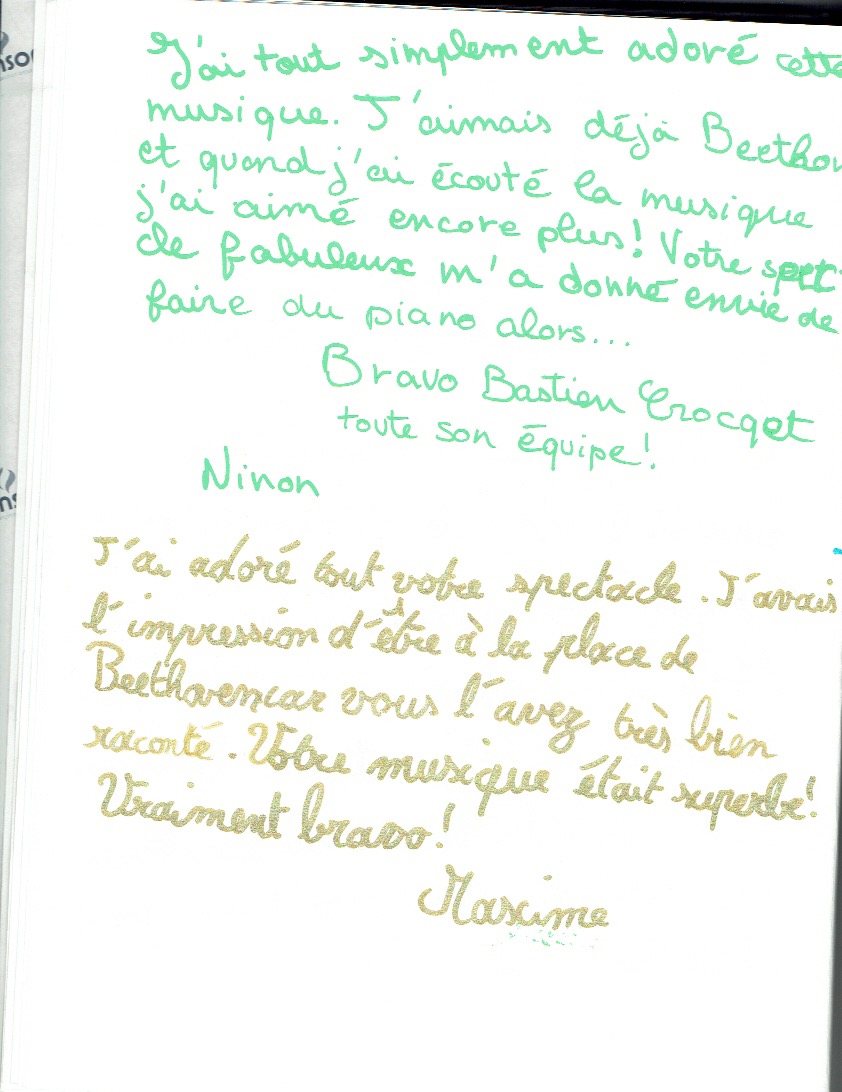 J'ai tout simplement adoré cette
musique. J'aimais déjà Beethov
et quand j'ai écouté la musique
j'ai aimé encore plus! Votre spec
de fabuleux m'a donné envie de
faire du piano alors...
Bravo Bastien Crocqet
toute son équipe!
Ninon
J'ai adoré tout votre spectacle. J'avais
l'impression d'être à la place de
Beethoven car vous l'avez très bien
raconté. Votre musique était superbe!
Vraiment bravo!
Maxime